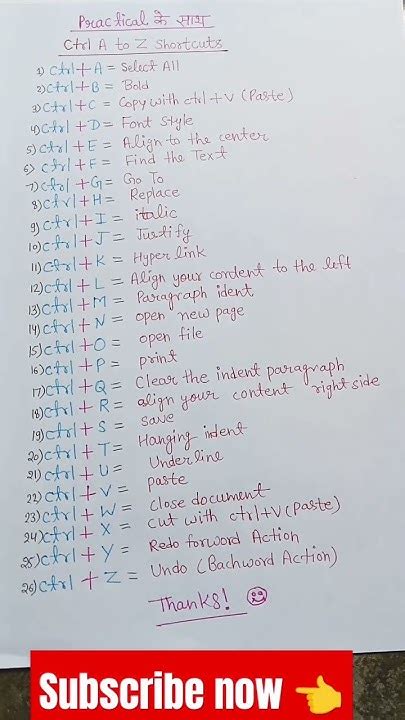 Practical के साथ
Ctrl A to Z Shortcuts
1) Ctrl+A = Select All
2) Ctrl+B = Bold
3) Ctrl+C = Copy with ctrl+V (Paste)
4) Ctrl+D = Font Style
5) Ctrl+E = Align to the center
6) Ctrl+F = Find the Text
7) Ctrl+G = Go To
8) Ctrl+H = Replace
9) Ctrl+I = italic
10) Ctrl+J = Justify
11) Ctrl+K = Hyper link
12) Ctrl+L = Align your content to the left
13) Ctrl+M = Paragraph ident
14) Ctrl+N = open new page
15) Ctrl+O = open file
16) Ctrl+P = print
17) Ctrl+Q = Clear the indent paragraph
18) Ctrl+R = align your content right side
19) Ctrl+S = save
20) Ctrl+T = Hanging indent
21) Ctrl+U = Underline
22) Ctrl+V = paste
23) Ctrl+W = Close document
24) Ctrl+X = Cut with ctrl+V (Paste)
25) Ctrl+Y = Redo forword Action
26) Ctrl+Z = Undo (Backword Action)
Thanks!
Subscribe now